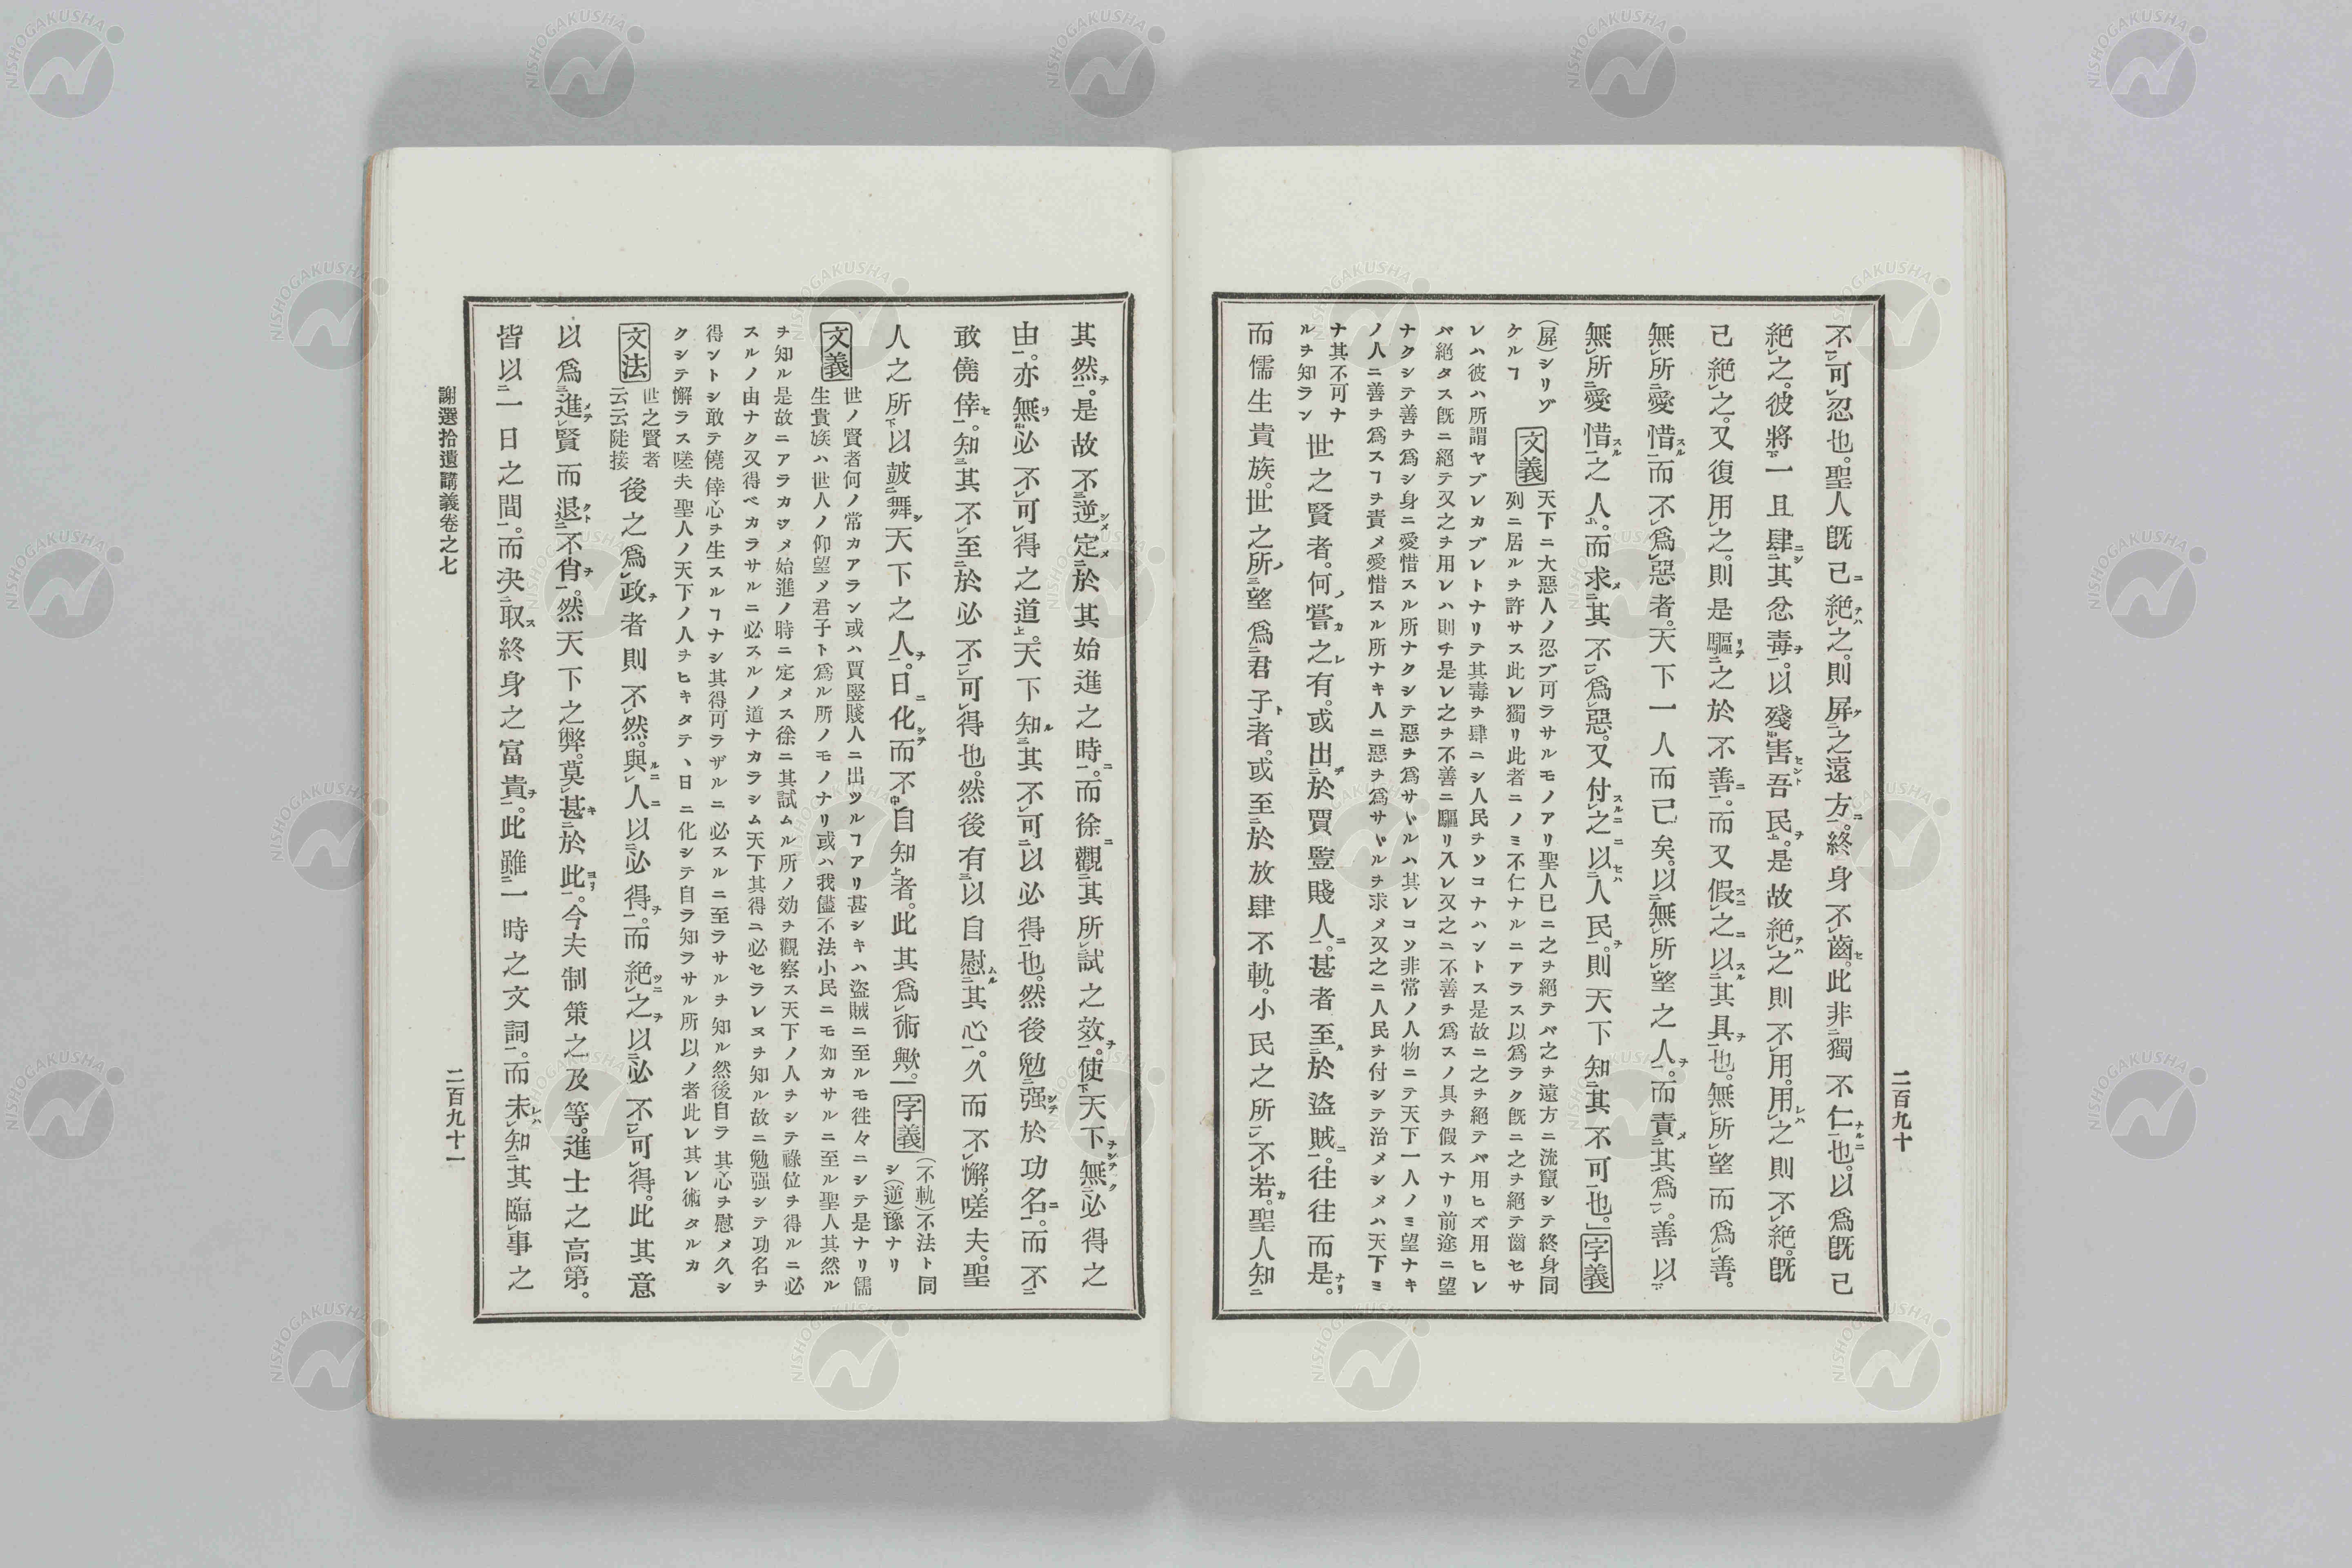 二百九十
不可忍也。聖人既已絶之。則屏之遠方。終身不齒。此非獨不仁也。以爲既已
絶之。彼將一旦肆其忿毒。以殘害吾民。是故絶之則不用。用之則不絶。既
已絶之。又復用之。則是驅之於不善。而又假之以其具也。無所望而爲善。
無所愛惜而不爲惡者。天下一人而已矣。以無所望之人。而責其爲善。以
無所愛惜之人。而求其不爲惡。又付之以人民。則天下知其不可也。」字義
(屏)シリゾ
ケルヿ
文義
天下ニ大惡人ノ忍ブ可ラサルモノアリ聖人已ニ之ヲ絕テバ之ヲ遠方ニ流竄シテ終身同
列ニ居ルヲ許サス此レ獨リ此者ニノミ不仁ナルニアラス以爲ラク既ニ之ヲ絕テ齒セサ
レハ彼ハ所謂ヤブレカブレトナリテ其毒ヲ肆ニシ人民ヲソコナハントス是故ニ之ヲ絕テバ用ヒズ用ヒレ
バ絕タス既ニ絕テ又之ヲ用レハ則チ是レ之ヲ不善ニ驅リ入レ又之ニ不善ヲ爲スノ具ヲ假スナリ前途ニ望
ナクシテ善ヲ爲シ身ニ愛惜スル所ナクシテ惡ヲ爲サヾルハ其レコソ非常ノ人物ニテ天下一人ノミ望ナキ
ノ人ニ善ヲ爲スヿヲ責メ愛惜スル所ナキ人ニ惡ヲ爲サヾルヲ求メ又之ニ人民ヲ付シテ治メシメハ天下ミ
ナ其不可ナ
ルヲ知ラン
世之賢者。何嘗之有。或出於賈豎賤人。甚者至於盜賊。往往而是。
而儒生貴族。世之所望爲君子者。或至於放肆不軌。小民之所不若。聖人知
其然。是故不逆定於其始進之時。而徐觀其所試之效。使天下無必得之
由。亦無必不可得之道。天下知其不可以必得也。然後勉强於功名。而不
敢僥倖。知其不至於必不可得也。然後有以自慰其心。久而不懈。嗟夫。聖
人之所以鼓舞天下之人。日化而不自知者。此其爲術歟。」字義
(不軌)不法ト同
シ(逆)豫ナリ
文義
世ノ賢者何ノ常カアラン或ハ賈豎賤人ニ出ツルヿアリ甚シキハ盜賊ニ至ルモ徃々ニシテ是ナリ儒
生貴族ハ世人ノ仰望メ君子ト爲ル所ノモノナリ或ハ我儘不法小民ニモ如カサルニ至ル聖人其然ル
ヲ知ル是故ニアラカヅメ始進ノ時ニ定メス徐ニ其試ムル所ノ効ヲ觀察ス天下ノ人ヲシテ祿位ヲ得ルニ必
スルノ由ナク又得ベカラサルニ必スルノ道ナカラシム天下其得ニ必セラレヌヲ知ル故ニ勉强シテ功名ヲ
得ントシ敢テ僥倖心ヲ生スルヿナシ其得可ラザルニ必スルニ至ラサルヲ知ル然後自ラ其心ヲ慰メ久シ
クシテ懈ラス嗟夫聖人ノ天下ノ人ヲヒキタテ、日ニ化シテ自ラ知ラサル所以ノ者此レ其レ術タルカ
文法
世之賢者
云云陡接
後之爲政者則不然。與人以必得。而絶之以必不可得。此其意
以爲進賢而退不肖。然天下之弊。莫甚於此。今夫制策之及等。進士之高第。
皆以一日之間。而決取終身之富貴。此雖一時之文詞。而未知其臨事之
謝選拾遺講義卷之七
二百九十一